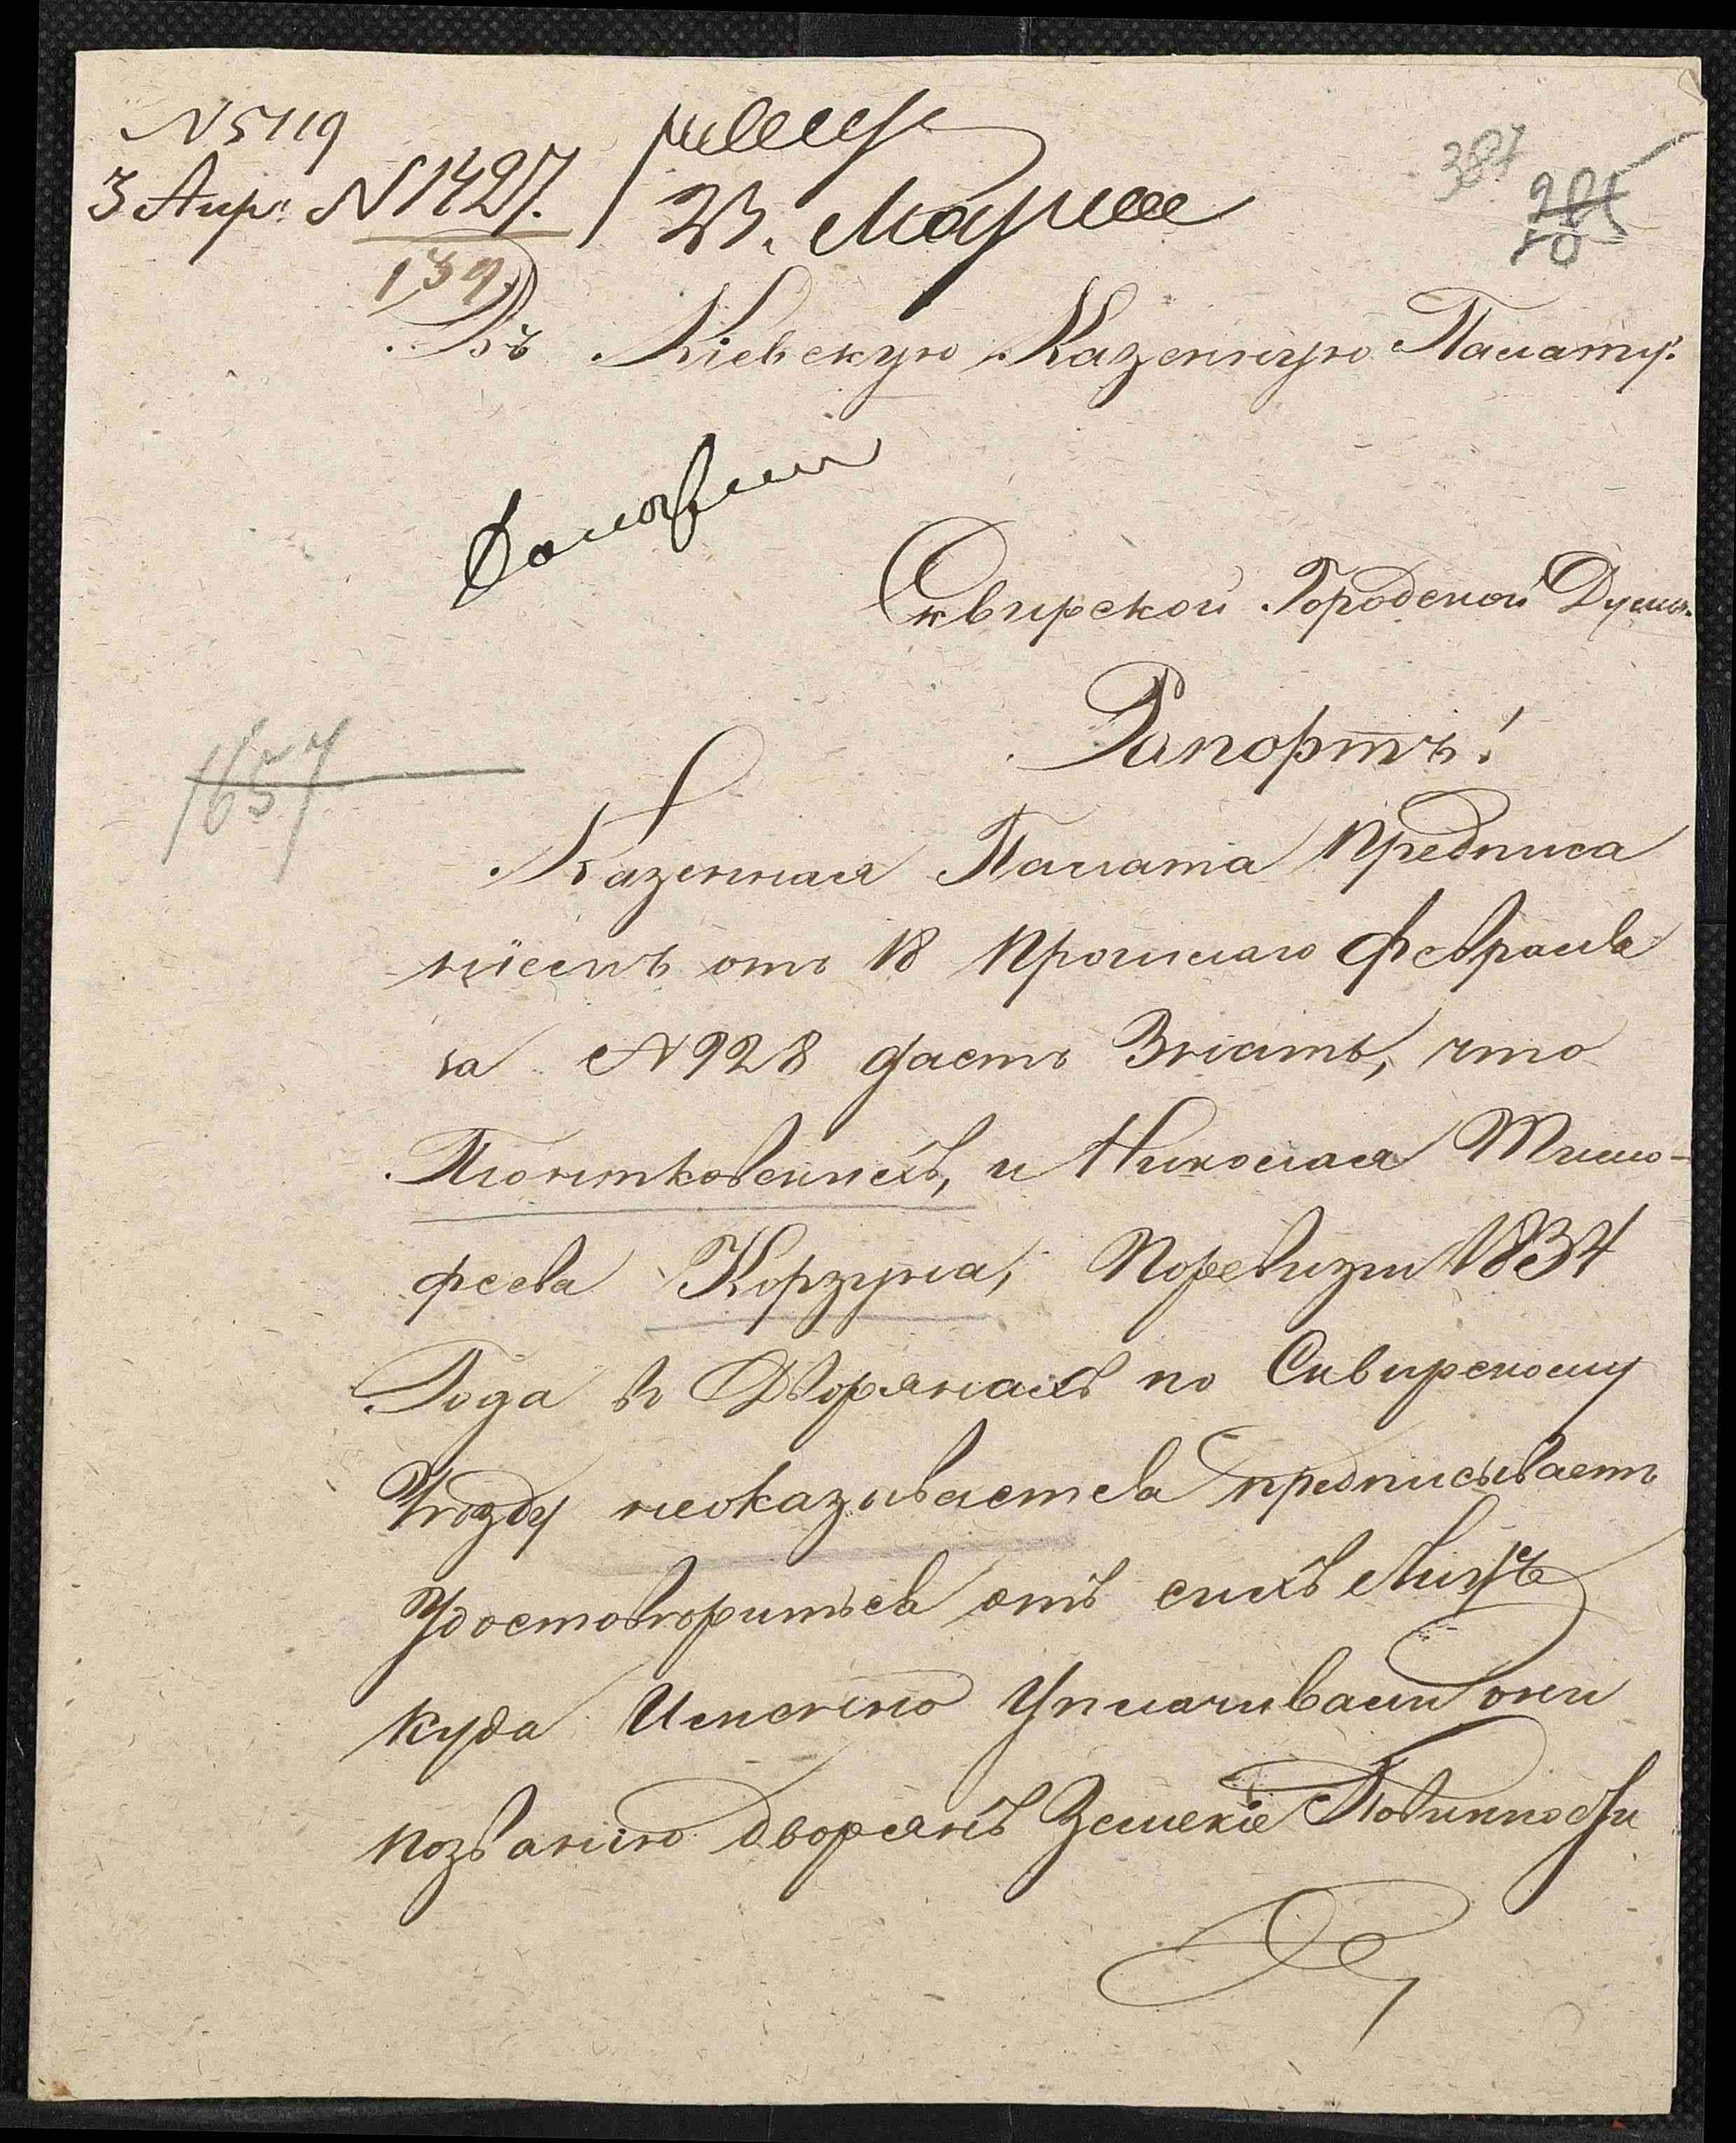 N 5119
3 Апр. N 1427.
23. Марта
139
384
Въ Кіевскую Казенную Палату.
Сквирской Городской Думы
Рапортъ!
1657
Казенная Палата предписа
ніемъ отъ 18 прошлаго Февраля
за N 928 даетъ знать, что
и Николая Тимо-
феева Корзуна, поревизіи 1834
Года въ Дворянахъ по Сквирскому
Уѣзду неоказывается предписываетъ
Удостовѣриться отъ сихъ Лицъ
куда Именно Уплачивали они
позванію дворянъ Земскіе Повинности